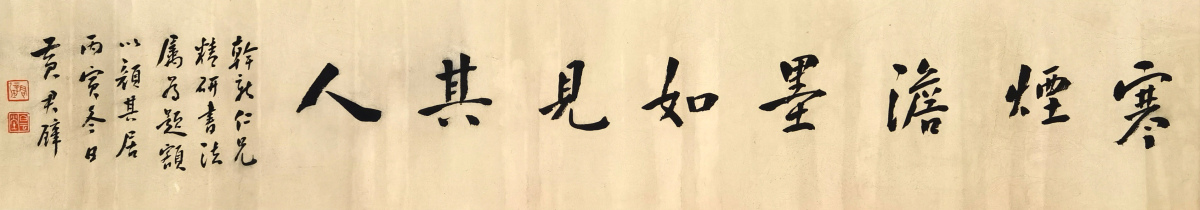 寒煙澹墨如見其人
幹龍仁兄
精研書法
屬為題額
以顏其居
丙寅冬日
黃君璧